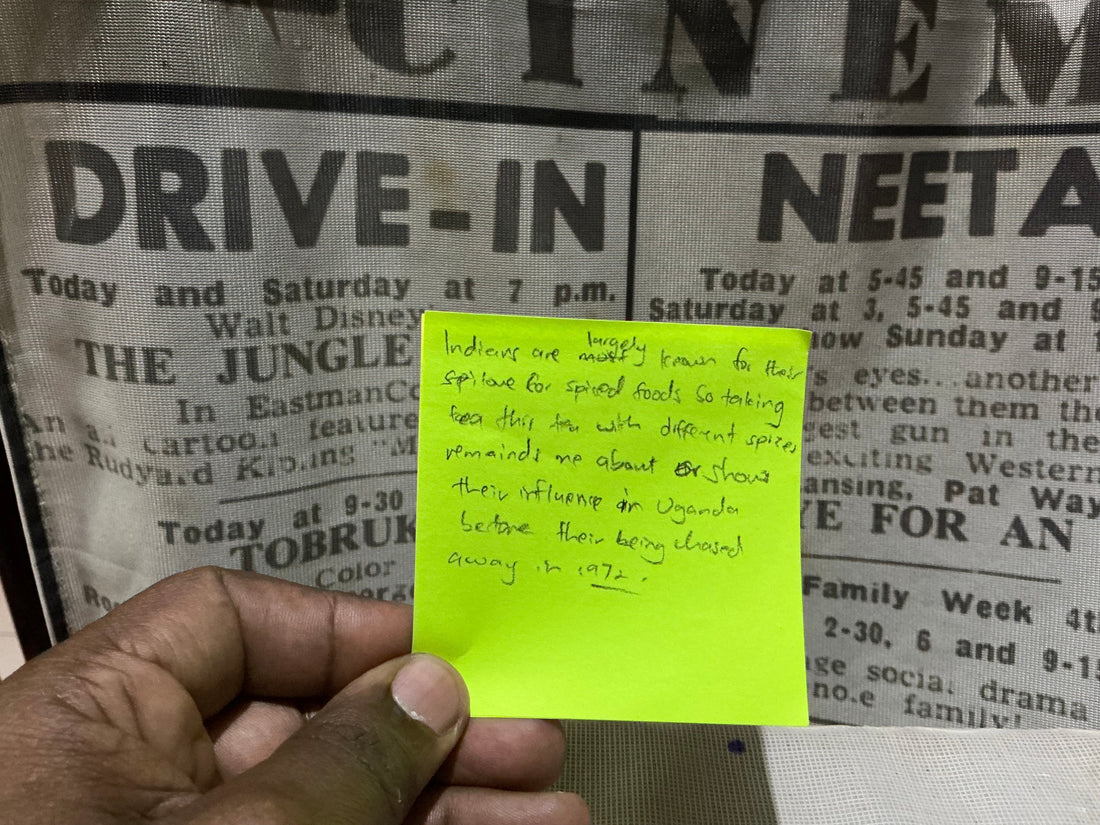 CINEM
DRIVE-IN
Today and Saturday at 7 p.m.
Walt Disney
THE JUNGLE
In EastmanCo
An a cartoon feature
he Rudyard Kipling "M
Today at 9-30
TOBRUK
Color
NEETA
Today at 5-45 and 9-15
Saturday at 3, 5-45 and 9
how Sunday at 1
's eyes...another
between them the
gest gun in the
exciting Western
ansing, Pat Way
YE FOR AN
Family Week 4t
2-30, 6 and 9-15
ge social drama
no.e family!
Indians are largely known for their
love for spiced foods so taking
this tea with different spices
remainds me about or shows
their influence in Uganda
before their being chased
away in 1972.